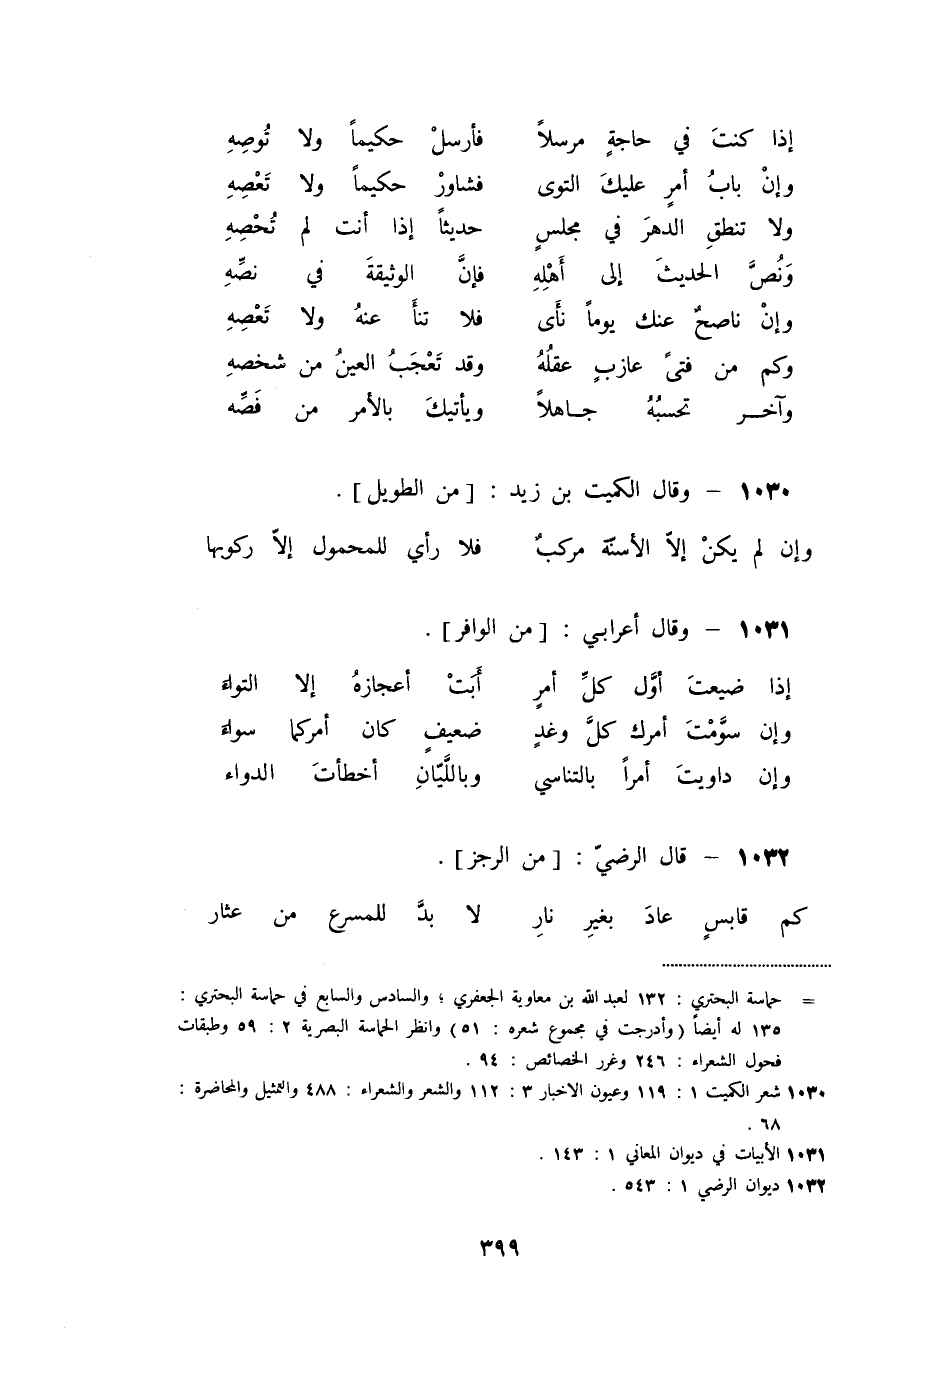 إذا كنتَ في حاجةٍ مرسلاً فأرسلْ حكيماً ولا تُوصِهِ
وإنْ بابُ أمرٍ عليكَ التوى فشاورْ حكيماً ولا تَعْصِهِ
ولا تنطقِ الدهرَ في مجلسٍ حديثاً إذا أنت لم تُحْصِهِ
وَنُصَّ الحديثَ إلى أَهْلِهِ فإنَّ الوثيقةَ في نصِّهِ
وإنْ ناصحٌ عنك يوماً نأَى فلا تنأَ عنهُ ولا تَعْصِهِ
وكم من فتىً عازبٍ عقلُهُ وقد تَعْجَبُ العينُ من شخصهِ
وآخر تحسبُهُ جاهلاً ويأتيكَ بالأمر من فَصِّه
١٠٣٠ – وقال الكميت بن زيد : [ من الطويل ] .
وإن لم يكنْ إلاّ الأسنّة مركبٌ فلا رأي للمحمول إلاّ ركوبها
١٠٣١ – وقال أعرابي : [ من الوافر ] .
إذا ضيعتَ أوَّل كلِّ أمرٍ أَبَتْ أعجازهُ إلا التواءَ
وإن سوَّمْتَ أمرك كلَّ وغدٍ ضعيفٍ كان أمركما سواءَ
وإن داويتَ أمراً بالتناسي وباللَّيّانِ أخطأتَ الدواء
١٠٣٢ – قال الرضيّ : [ من الرجز ] .
كم قابسٍ عادَ بغيرِ نارِ لا بدَّ للمسرع من عثار
= حماسة البحتري : ١٣٢ لعبد الله بن معاوية الجعفري ؛ والسادس والسابع في حماسة البحتري :
١٣٥ له أيضاً ( وأدرجت في مجموع شعره : ٥١ ) وانظر الحماسة البصرية ٢ : ٥٩ وطبقات
فحول الشعراء : ٢٤٦ وغرر الخصائص : ٩٤ .
١٠٣٠ شعر الكميت ١ : ١١٩ وعيون الاخبار ٣ : ١١٢ والشعر والشعراء : ٤٨٨ والتمثيل والمحاضرة :
٦٨ .
١٠٣١ الأبيات في ديوان المعاني ١ : ١٤٣ .
١٠٣٢ ديوان الرضي ١ : ٥٤٣ .
٣٩٩